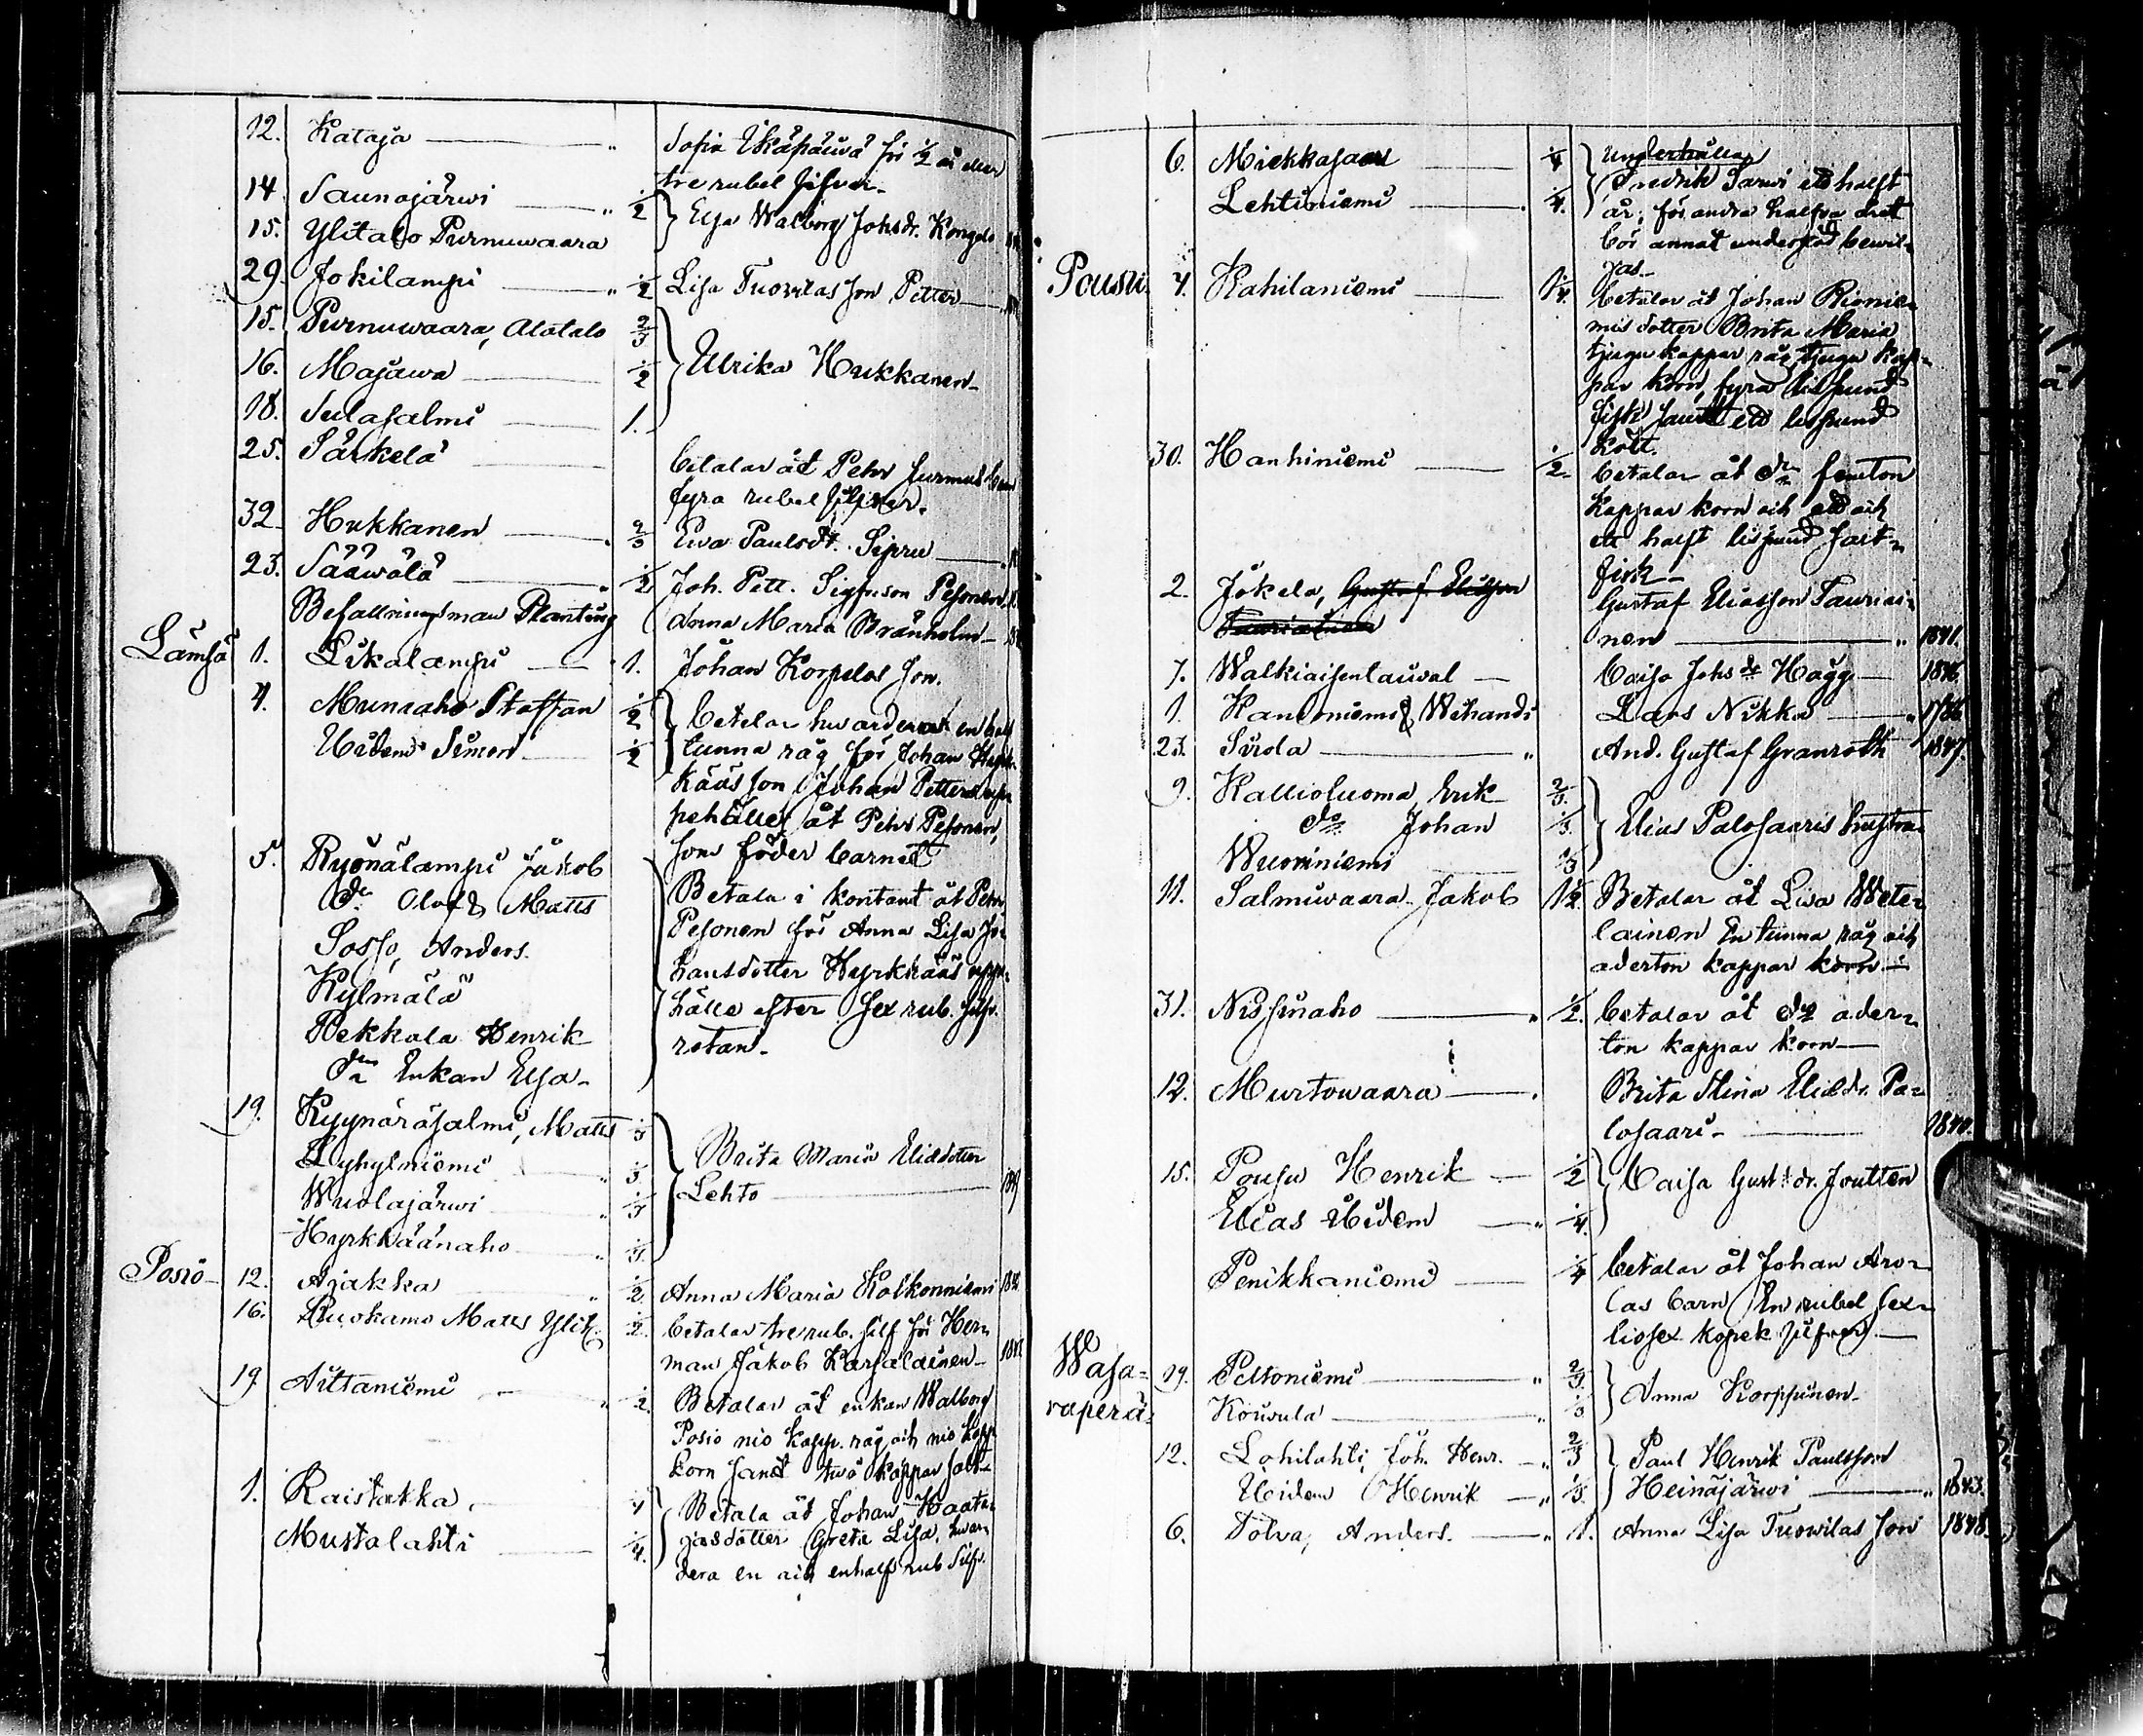 12. Kataja " Sofia Ikäpäiwä för 1/2 år eller
tre rubel silfver.
14. Saunajärwi " 1/2 Elsa Walborg Johsdr. Kongas
15. Ylitalo Purnuwaara
29. Jokilampi " 1/2 Lisa Tuovilas son Petter
15. Purnuwaara, Alatalo 2/3
16. Majawa 1/2 Ulrika Hukkanen
18. Sulasalmi 1.
25. Särkelä betalar åt Pehr
fyra rubel silfver.
32. Hukkanen 2/3 Ewa Paulsdr. Sipru
23. Sääwälä " 1/2 Joh. Pett. Sigfrsson Pesonen
Befallningsman Planting Anna Maria Stranholm
Lämsä 1. Likalampi 1. Johan Korpelas son.
4. Munaaho Staffan 1/2 betalar hwardera en half
Ibidem Simon 1/2 tunna råg för Johan
kääs son Johan Petters upp
pehälle åt Pehr Pesonen,
som föder barnet
5. Ryönälampi Jakob
do Olof & Matts Betala i kontant åt Pehr
Sosso, Anders. Pesonen för Anna Lisa Jo-
Kylmälä hansdotter Hyrkkääs uppe-
Pekkala Henrik hälle efter sex rub. silfr.
do Enkan Elsa rotan.
19. Kyynäräsalmi, Matts 1/3
Lyhyhniemi " 1/3 Brita Maria Eliedotter
Wuolajärwi " 1/3 Lehto
Hyrkkäänaho " 1/3
Posio 12. Ajakka " 1/2 Anna Maria Kolkonniemi
16. Ruokamo Matts Ylit. 1/2 betalar tre rub. silf för Her-
man Jakob Karjalainen
19 Aittaniemi " 1/2 Betalar åt enkan Walborg
Posio nio kapp. råg och nio kapp
korn samt två kappar salt
1. Raistakka 1/4 Betala åt Johan Haata-
Mustalahti 1/4. jasdotter Greta Lisa, hwar-
dera en och en half rub Silfr.
6. Miekkasaari 1/4 Underhålla
Lehtiniemi 1/4. Fredrik Sarwi ett halft
år; för andra halfva året
bör annat understöd bewil-
jas
Pousu 4. Kahilaniemi 1 1/4. betalar åt Johan Rionie-
mis dotter Brita Maria
tjugu kappar råg, tjugu kap-
par korn, fyra lispund
fisk samt ett lispund
kött.
30. Hanhiniemi 1/2 betalar åt do femton
kappar korn och ett och
ett halft lispund salt-
fisk
2. Jokela, Gustaf Eliasson Gustaf Eliasson Tauriai-
Tauriainen nen " 1841.
7. Walkiaisenlauwal Caisa Johsdr Hägg 1846.
1. Kantoniemi & Wihandi Lars Nikka " 1786
23. Sirola " And. Gustaf Granroth 1847.
9. Kallioluoma Erik 2/3.
do Johan 1/3. Elias Palosaaris hustru
Wuoriniemi 1/3
11. Salmiwaara Jakob 1 1/2. Betalar åt Lisa Wete-
lainen En tunna råg och
aderton kappar korn
31. Nissinaho " 1/2. betalar åt do ader-
ton kappar korn
12. Murtowaara Brita Stina Eliedr. Pa-
losaari 1840.
15. Pousu Henrik 1/2 Caisa Gust. dr. Joutten
Elias Ibidem " 1/4.
Penikkaniemi 1/4 betalar åt Johan Aro-
las barn En rubel sex-
tiosex kopek silfver.
Wasa- 19. Peltoniemi " 2/3 Anna Korppinen
raperä Kouwala " 1/3
12. Lohilahti, Joh. Henr. " 2/3 Paul Henrik Paulsson
Ibidem Henrik " 1/3. Heinäjärwi " 1843.
6. Tolva, Anders. " 1. Anna Lisa Tuovilas son 1848.